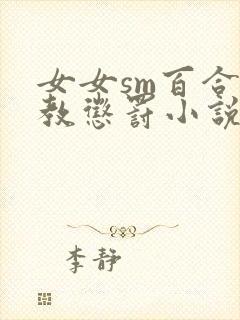 女女sm百合
教惩罚小说
李静